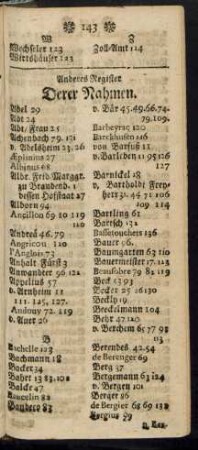 143
W
Wechseler 123
Wirtshäuser 123
Z
Zoll-Amt 114
Anderes Register
Derer Nahmen.
Abel 29
Abt 24
Abt/ Frau 25
Achenbach 79. 121
v. Adelsheim 23. 26
Æpinus 27
Albinus 68
Albr. Frid. Marggr.
zu Brandenb. 1
dessen Hofstaat 27
Alborn 94
Ancillon 69 110 119
120
Andreä 46. 79
Angricon 110
l'Anglois 73
Anhalt Fürst 3
Anwander 90 121
Appelius 57
v. Arnheim 11
111. 125, 127.
Andouy 72. 119
v. Auer 26
B
Bachelle 123
Bachmann 18
Backer 34
Bahrt 13 83. 102
Balcke 47
Bancelin 82
Bandeco 83
v. Bär 45. 49. 66. 74.
79. 109.
Barbeyrac 120
Barckhusen 116
von Barfuß 11
v. Barleben 11 95 116
127
Barnickel 18
v. Bartholdi Frey-
herr 31. 44 71 106
109 114
Bartling 61
Bartsch 132
Bassetouchers 136
Bauer 96.
Baumgarten 63 110
Bauermeister 17. 112
Beausobre 79 82 119
Beck 53 93
Becker 25 16 130
Becklin 19
Breckelmann 104
Behr 47. 120
v. Berchem 65 77 98
113
Berendes 42. 54
de Berenger 69
Berg 37
Bergemann 63 124
v. Bergen 101
Berger 86
de Bergier 65 69 138
Bergius 59